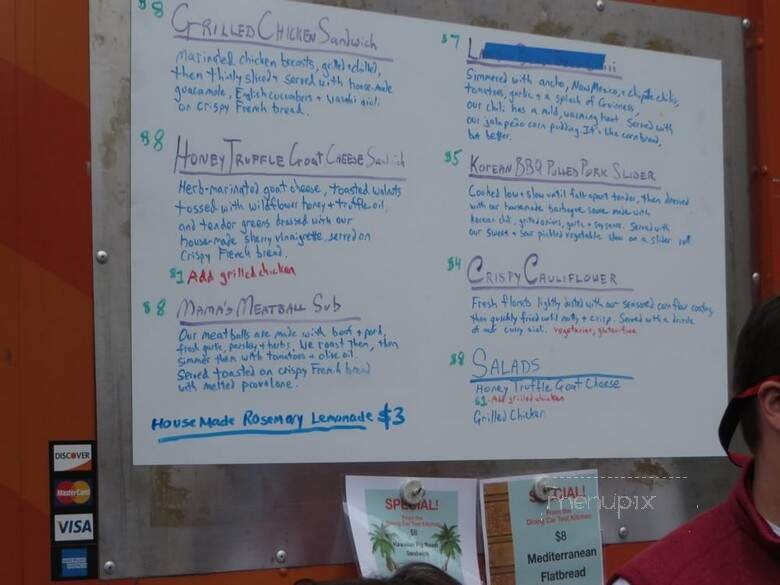 $8 GRILLED CHICKEN Sandwich
marinated chicken breasts, grilled + chilled,
then thinly sliced + served with house-made
guacamole, English cucumbers + wasabi aioli
on crispy French bread.
$8 HONEY TRUFFLE GOAT CHEESE Sandwich
Herb-marinated goat cheese, toasted walnuts
tossed with wildflower honey + truffle oil,
and tender greens dressed with our
house-made sherry vinaigrette, served on
crispy French bread.
$1 Add grilled chicken
$8 MAMA'S MEATBALL SUB
Our meatballs are made with beef + pork,
fresh garlic, parsley + herbs. We roast them, then
simmer them with tomatoes + olive oil.
Served toasted on crispy French bread
with melted provolone.
HOUSE MADE ROSEMARY LEMONADE $3
$7
Simmered with ancho, New Mexico, + chipotle chilis,
tomatoes, garlic + a splash of Guinness,
our chili has a mild, warming heat. Served with
our jalapeño corn pudding. It's like cornbread,
but better.
$5 KOREAN BBQ PULLED PORK SLIDER
Cooked low + slow until fall-apart tender, then dressed
with our housemade barbeque sauce made with
Korean chili, grated onions, garlic + soy sauce. Served with
our sweet + sour pickled vegetable slaw on a slider roll
$4 CRISPY CAULIFLOWER
Fresh florets lightly dusted with our seasoned corn flour coating,
then quickly fried until nutty + crisp. Served with a drizzle
of our curry aioli. vegetarian, gluten-free
$8 SALADS
Honey Truffle Goat Cheese
$1 Add grilled chicken
Grilled Chicken
DISCOVER
MasterCard
VISA
AMERICAN EXPRESS
SPECIAL!
From the
Dining Car Test Kitchen
$8
Hawaiian Pig Roast
Sandwich
SPECIAL!
From the
Dining Car Test Kitchen
$8
Mediterranean
Flatbread
menupix